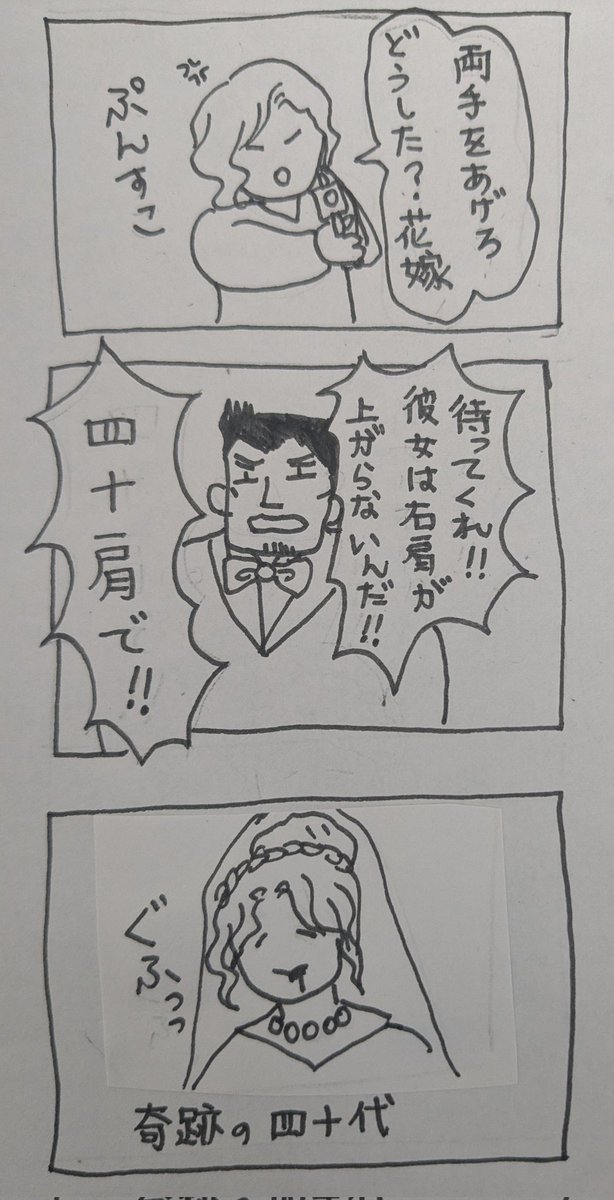 両手をあげろ
どうした?花嫁
ぷんすこ
待ってくれ!!
彼女は右肩が
上がらないんだ!!
四十肩で!!
ぐふっっ
奇跡の四十代